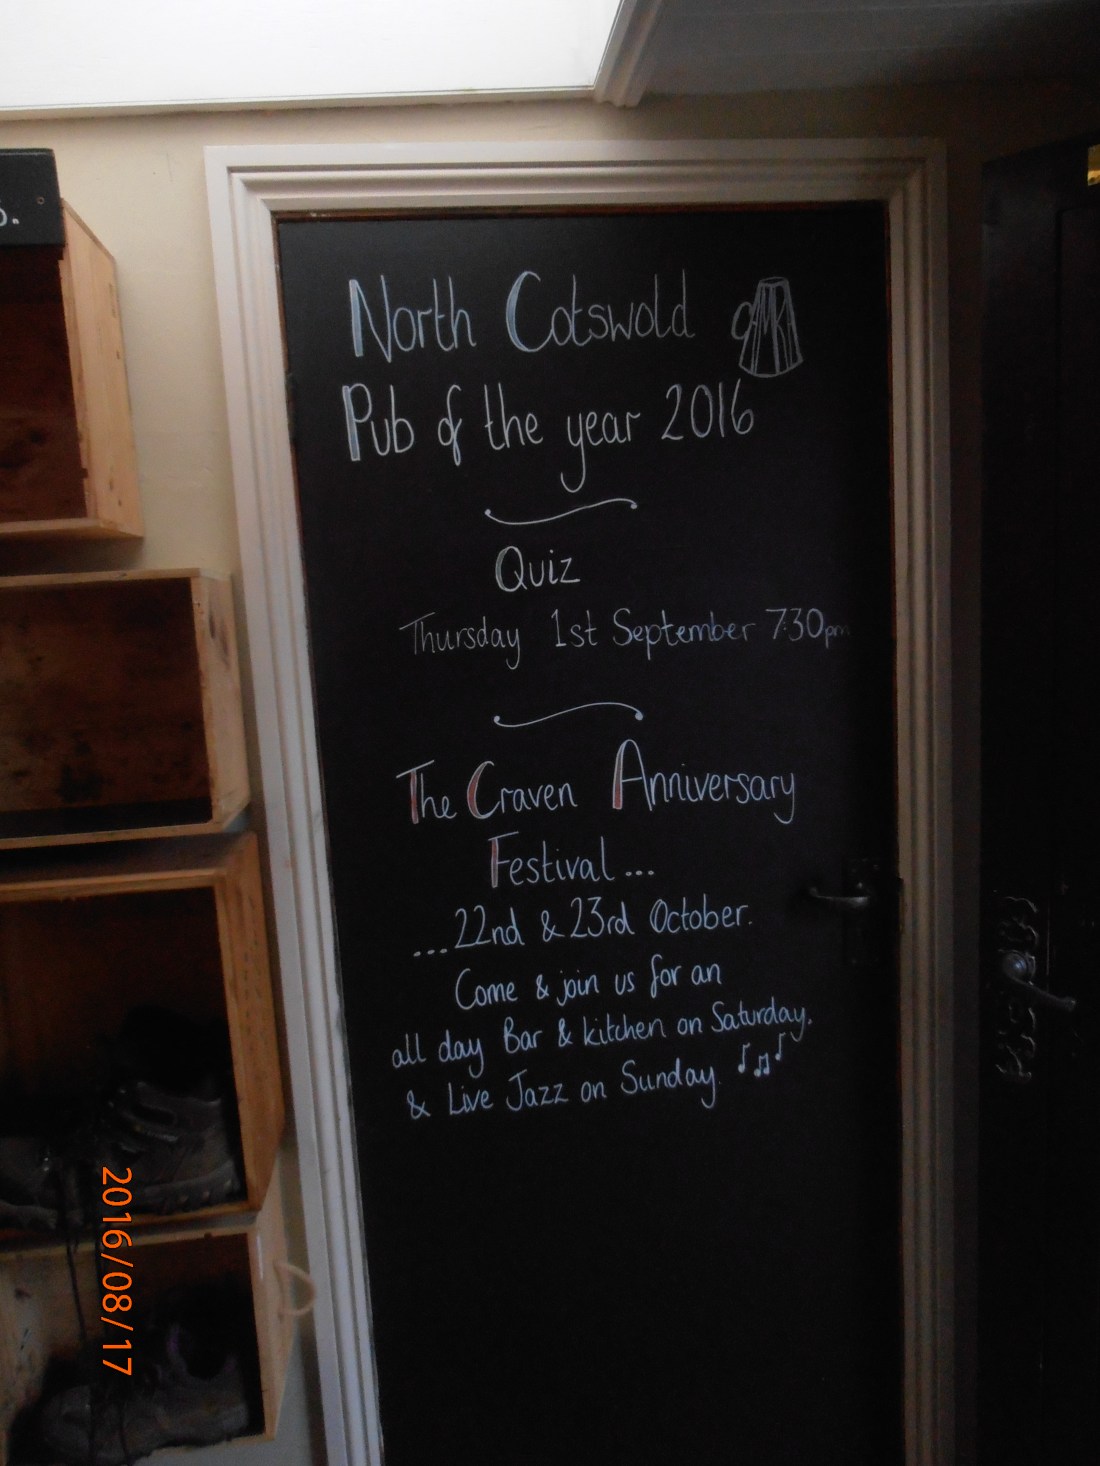 North Cotswold
Pub of the year 2016
Quiz
Thursday 1st September 7:30pm
The Craven Anniversary
Festival...
...22nd & 23rd October.
Come & join us for an
all day Bar & kitchen on Saturday,
& Live Jazz on Sunday.
2016/08/17